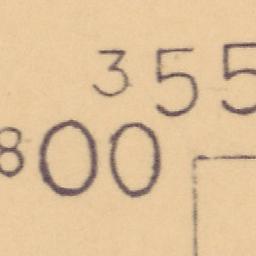 355
800